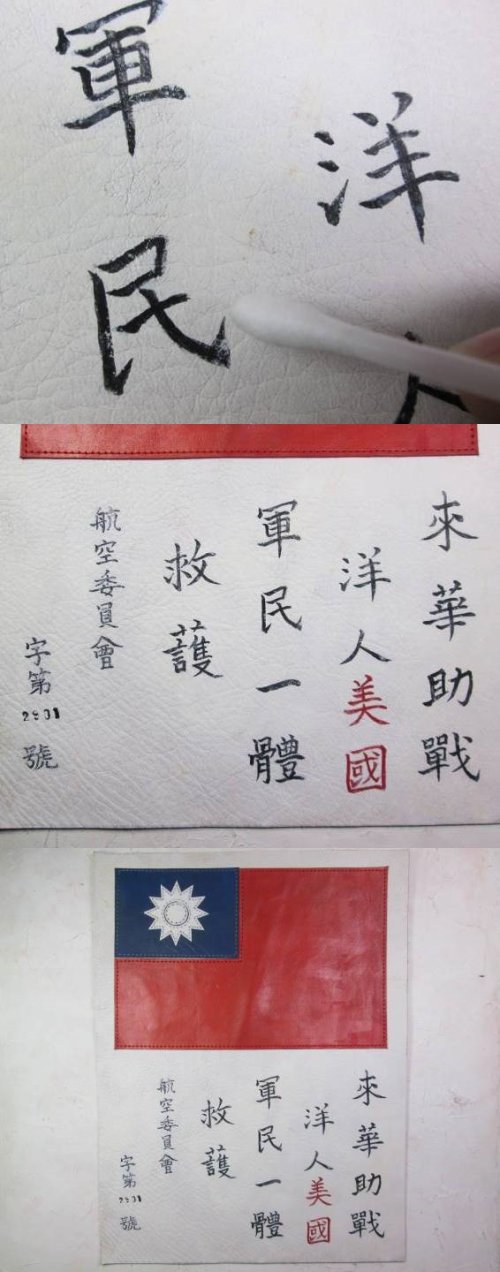 洋人
軍民
來華助戰
洋人美國
軍民一體
救護
航空委員會
字第
號
來華助戰
洋人美國
軍民一體
救護
航空委員會
字第
號